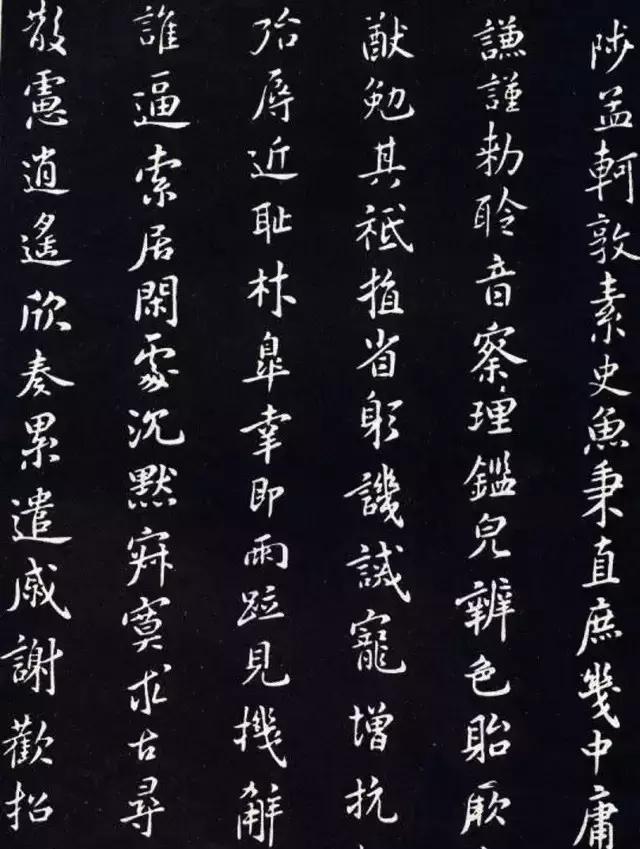 陟孟軻敦素史魚秉直庶幾中庸
謙謹勅聆音察理鑑皃辨色貽厥
猷勉其祗植省躬譏誡寵增抗
殆辱近耻林皐幸即兩疏見機解
誰逼索居閑處沉默寂寞求古尋
散慮逍遙欣奏累遣慼謝歡招